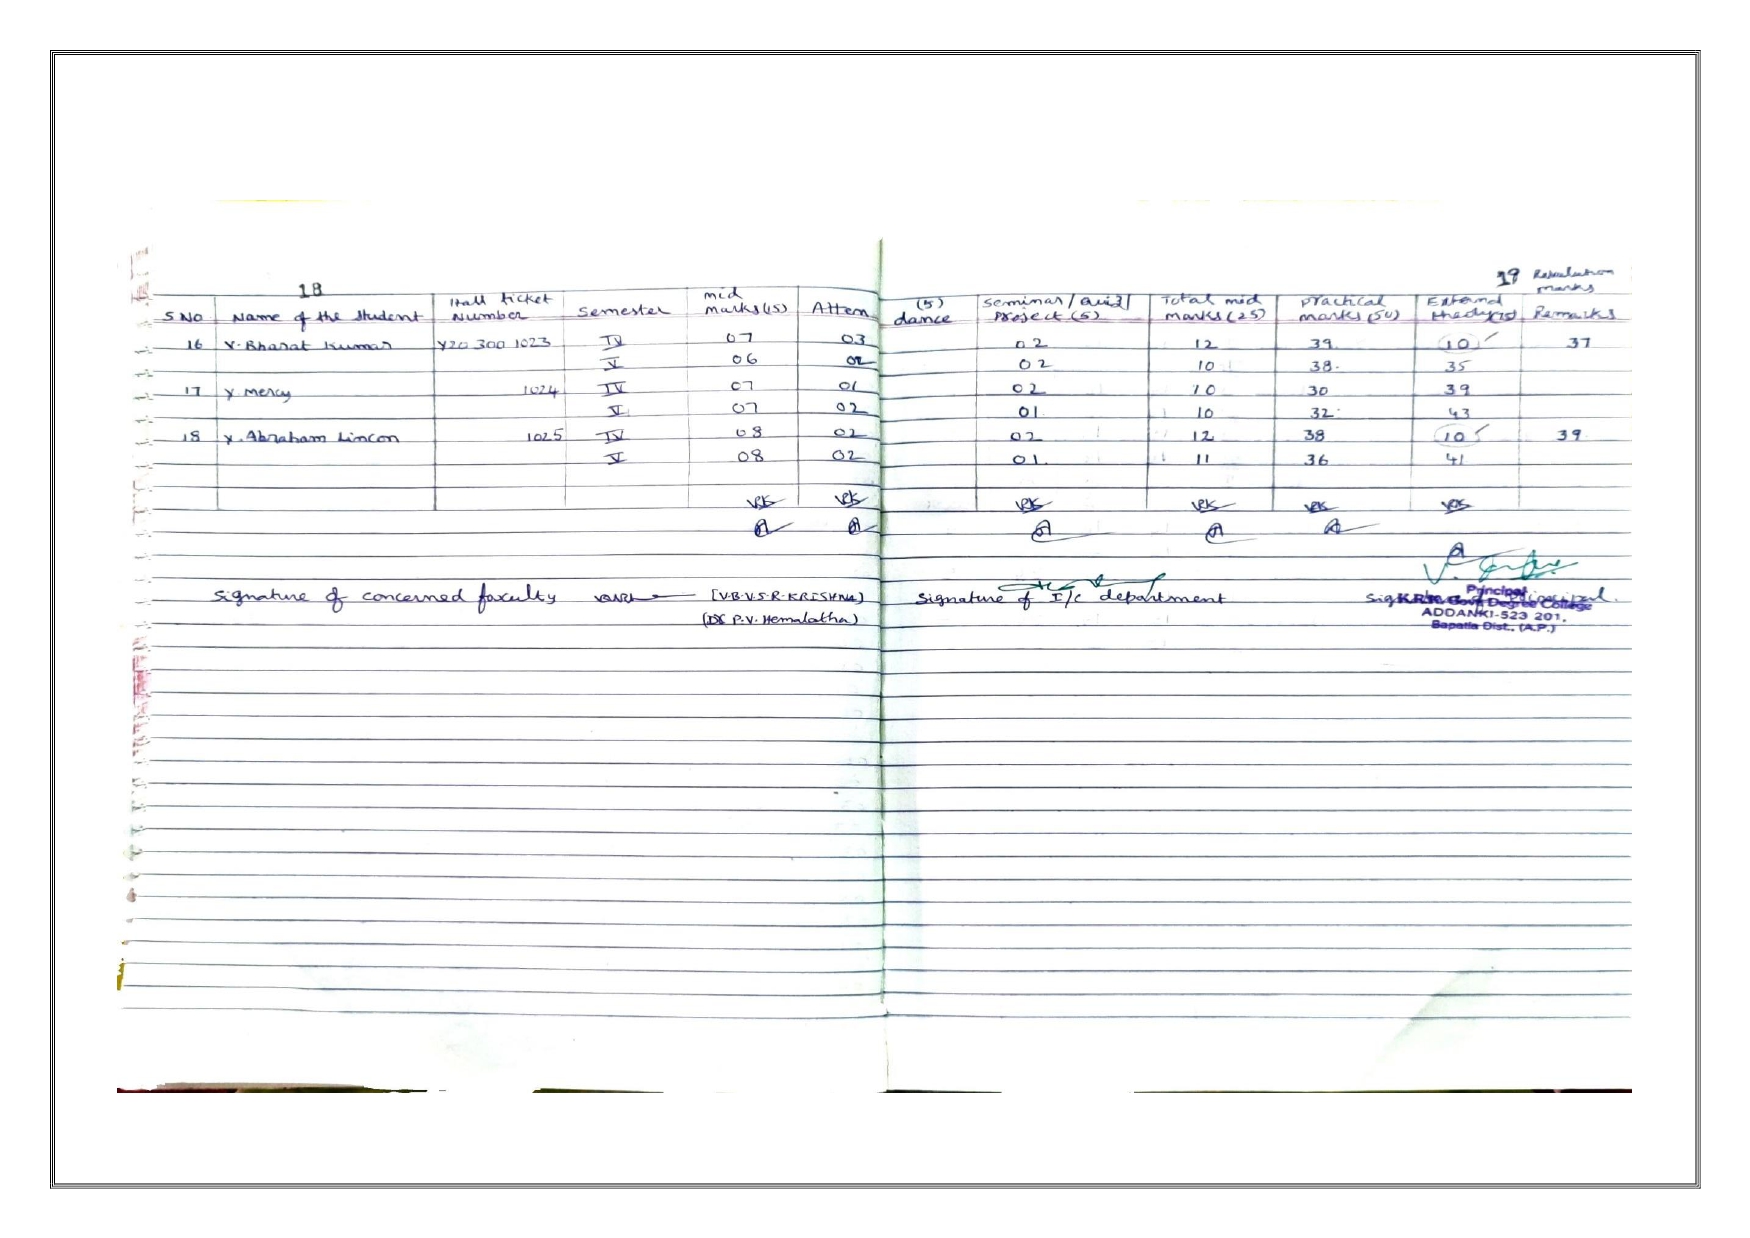 18
19 Revaluation
marks
S No Name of the student Hall ticket Number Semester mid marks(15) Attendance (5) Seminar/Quiz/Project (5) Total mid marks (25) Practical marks (50) External Remarks
16 Y. Bharat Kumar Y20 300 1023 IV 07 03 02 12 39 10 37
V 06 02 02 10 38 35
17 Y. Mercy 1024 IV 07 01 02 10 30 39
V 07 02 01 10 32 43
18 Y. Abraham Lincon 1025 IV 08 02 02 12 38 10 39
V 08 02 01 11 36 41
Signature of concerned faculty [V.B.V.S.R.KRISHNA] Signature of I/c department
(Dr P.V. Hemalatha)
Principal
Govt Degree College
ADDANKI-523 201.
Bapatla Dist., (A.P.)